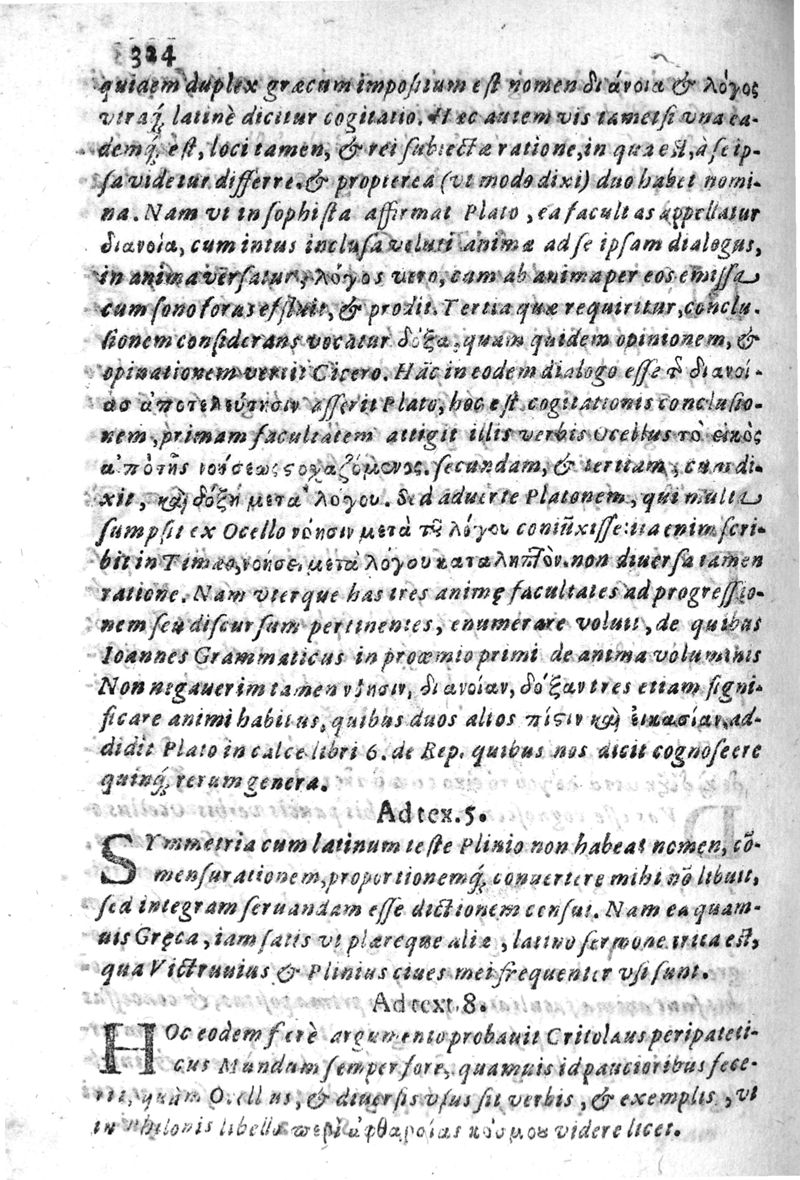 324
quidem duplex græcum impositum est nomen διάνοια & λόγος
vtraq́; latinè dicitur cogitatio. Hæc autem vis tametsi vna ea-
demq́; est, loci tamen, & rei subiectæ ratione, in qua est, à se ip-
sa videtur differre. & propterea (vt modo dixi) duo habet nomi-
na. Nam vt in sophista affirmat Plato, ea facultas appellatur
διανοία, cum intus inclusa veluti animæ ad se ipsam dialogus,
in anima versatur, λόγος vero, cum ab anima per eos emissa
cum sono foras effluit, & prodit. Tertia quæ requiritur, conclu-
sionem considerans vocatur δόξα, quam quidem opinionem, &
opinationem vertit Cicero. Hāc in eodem dialogo esse τ͂ διανοί-
ας ἀποτελεύτησιν asserit Plato, hoc est cogitationis conclusio-
nem, primam facultatem attigit illis verbis Ocellus τὸ εἰκὸς
ἀπὸ τῆς νοήσεως ϛοχαζόμενος. secundam, & tertiam, cum di-
xit, καὶ δόξῃ μετὰ λόγου. Sed aduerte Platonem, qui multa
sumpsit ex Ocello νόησιν μετὰ τοῦ λόγου coniūxisse: ita enim scri-
bit in Timæo, νοήσει μετὰ λόγου καταληπτόν. non diuersa tamen
ratione. Nam vterque has tres animę facultates ad progressio-
nem seu discursum pertinentes, enumerare voluit, de quibus
Ioannes Grammaticus in proæmio primi de anima voluminis
Non negauerim tamen νόησιν, διανοίαν, δόξαν tres etiam signi-
ficare animi habitus, quibus duos alios πίϛιν καὶ εἰκασίαν, ad-
didit Plato in calce libri 6. de Rep. quibus nos dicit cognoscere
quinq́; rerum genera.
Ad tex. 5.
SYmmetria cum latinum teste Plinio non habeat nomen, cō-
mensurationem, proportionemq́; conuertere mihi nō libuit,
sed integram seruandam esse dictionem censui. Nam ea quam-
uis Gręca, iam satis vt plæreque aliæ, latino sermone trita est,
qua Victruuius & Plinius ciues mei frequenter vsi sunt.
Ad text. 8.
HOc eodem ferè argumento probauit Critolaus peripateti-
cus Mundum semper fore, quamuis id paucioribus fece-
rit, quàm Ocellus, & diuersis vsus sit verbis, & exemplis, vt
in Philonis libello περὶ ἀφθαρσίας κόσμου videre licet.